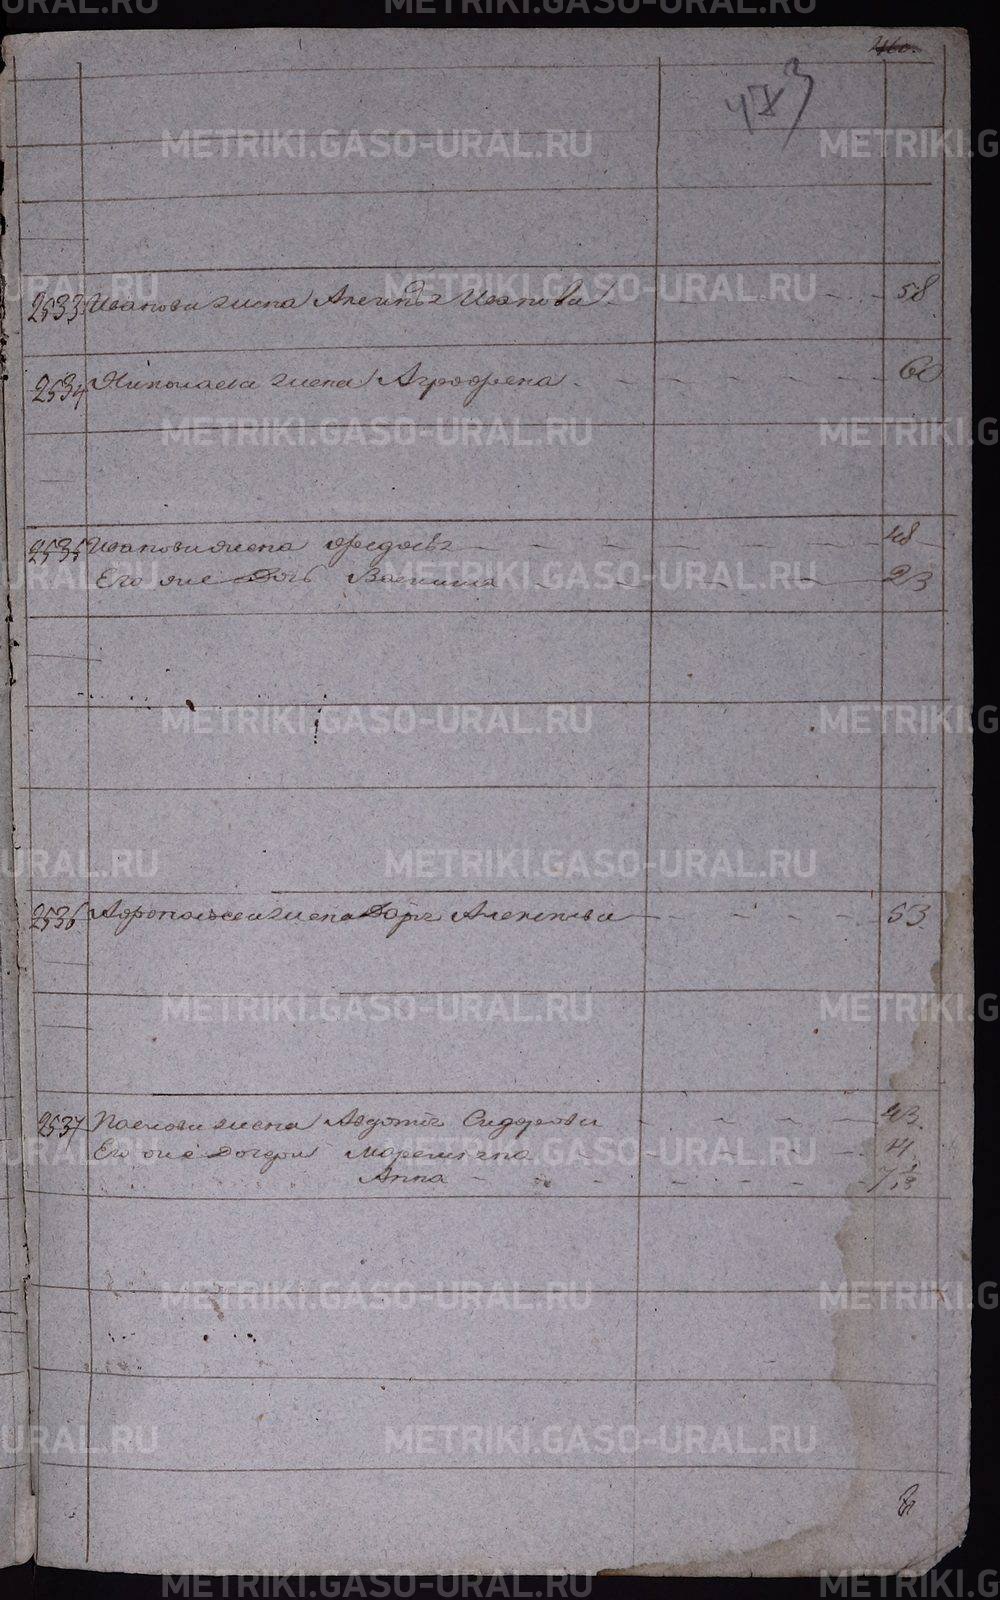 473
2533 Иванова жена Аксинья Иванова 58
2534 Николаева жена Агрофена 60
2535 Иванова жена Федосья 48
Его же дочь Василиса 23
2536 Афонасьева жена Дарья Алексеева 53
2537 Павлова жена Авдотья Сидорова 43
Его же дочери Маремьяна 14
Анна 7
8
METRIKI.GASO-URAL.RU